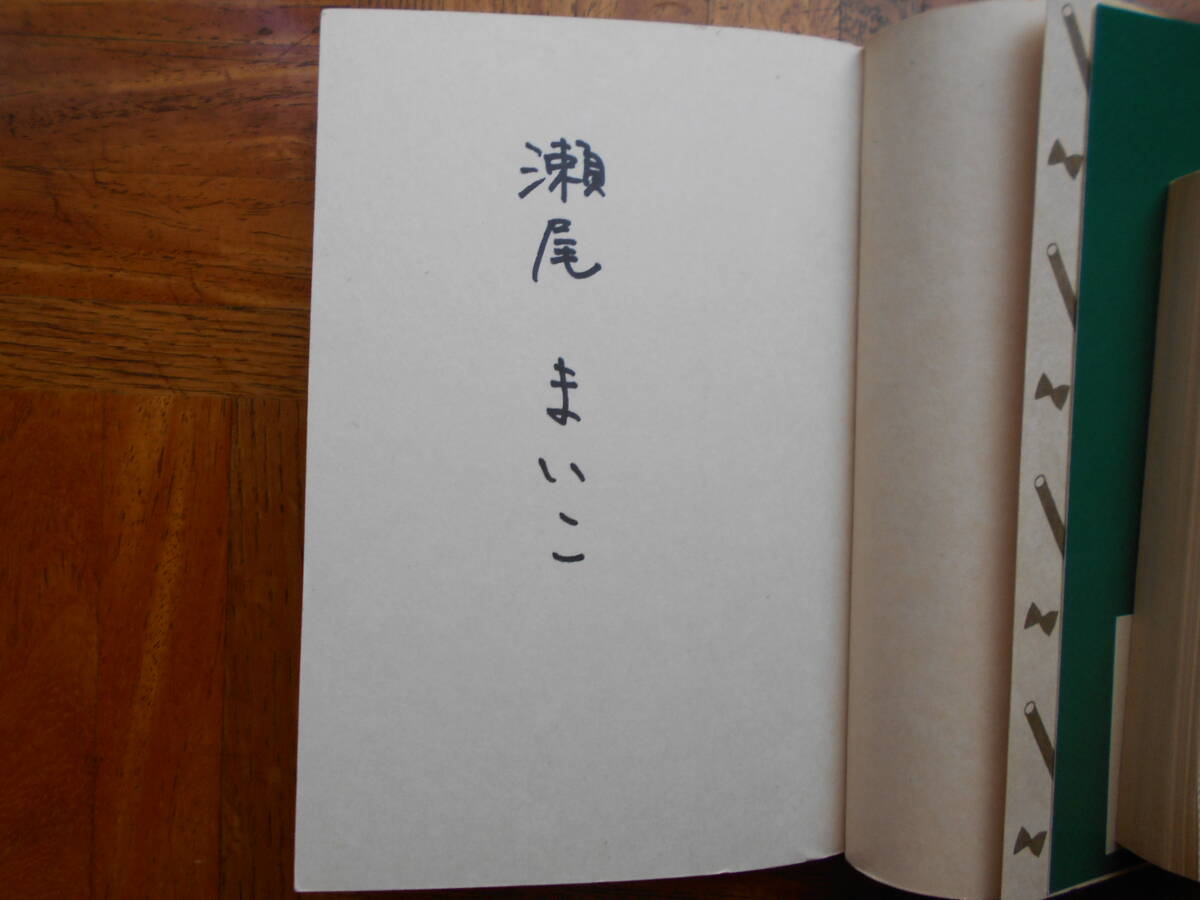 瀬尾 まいこ